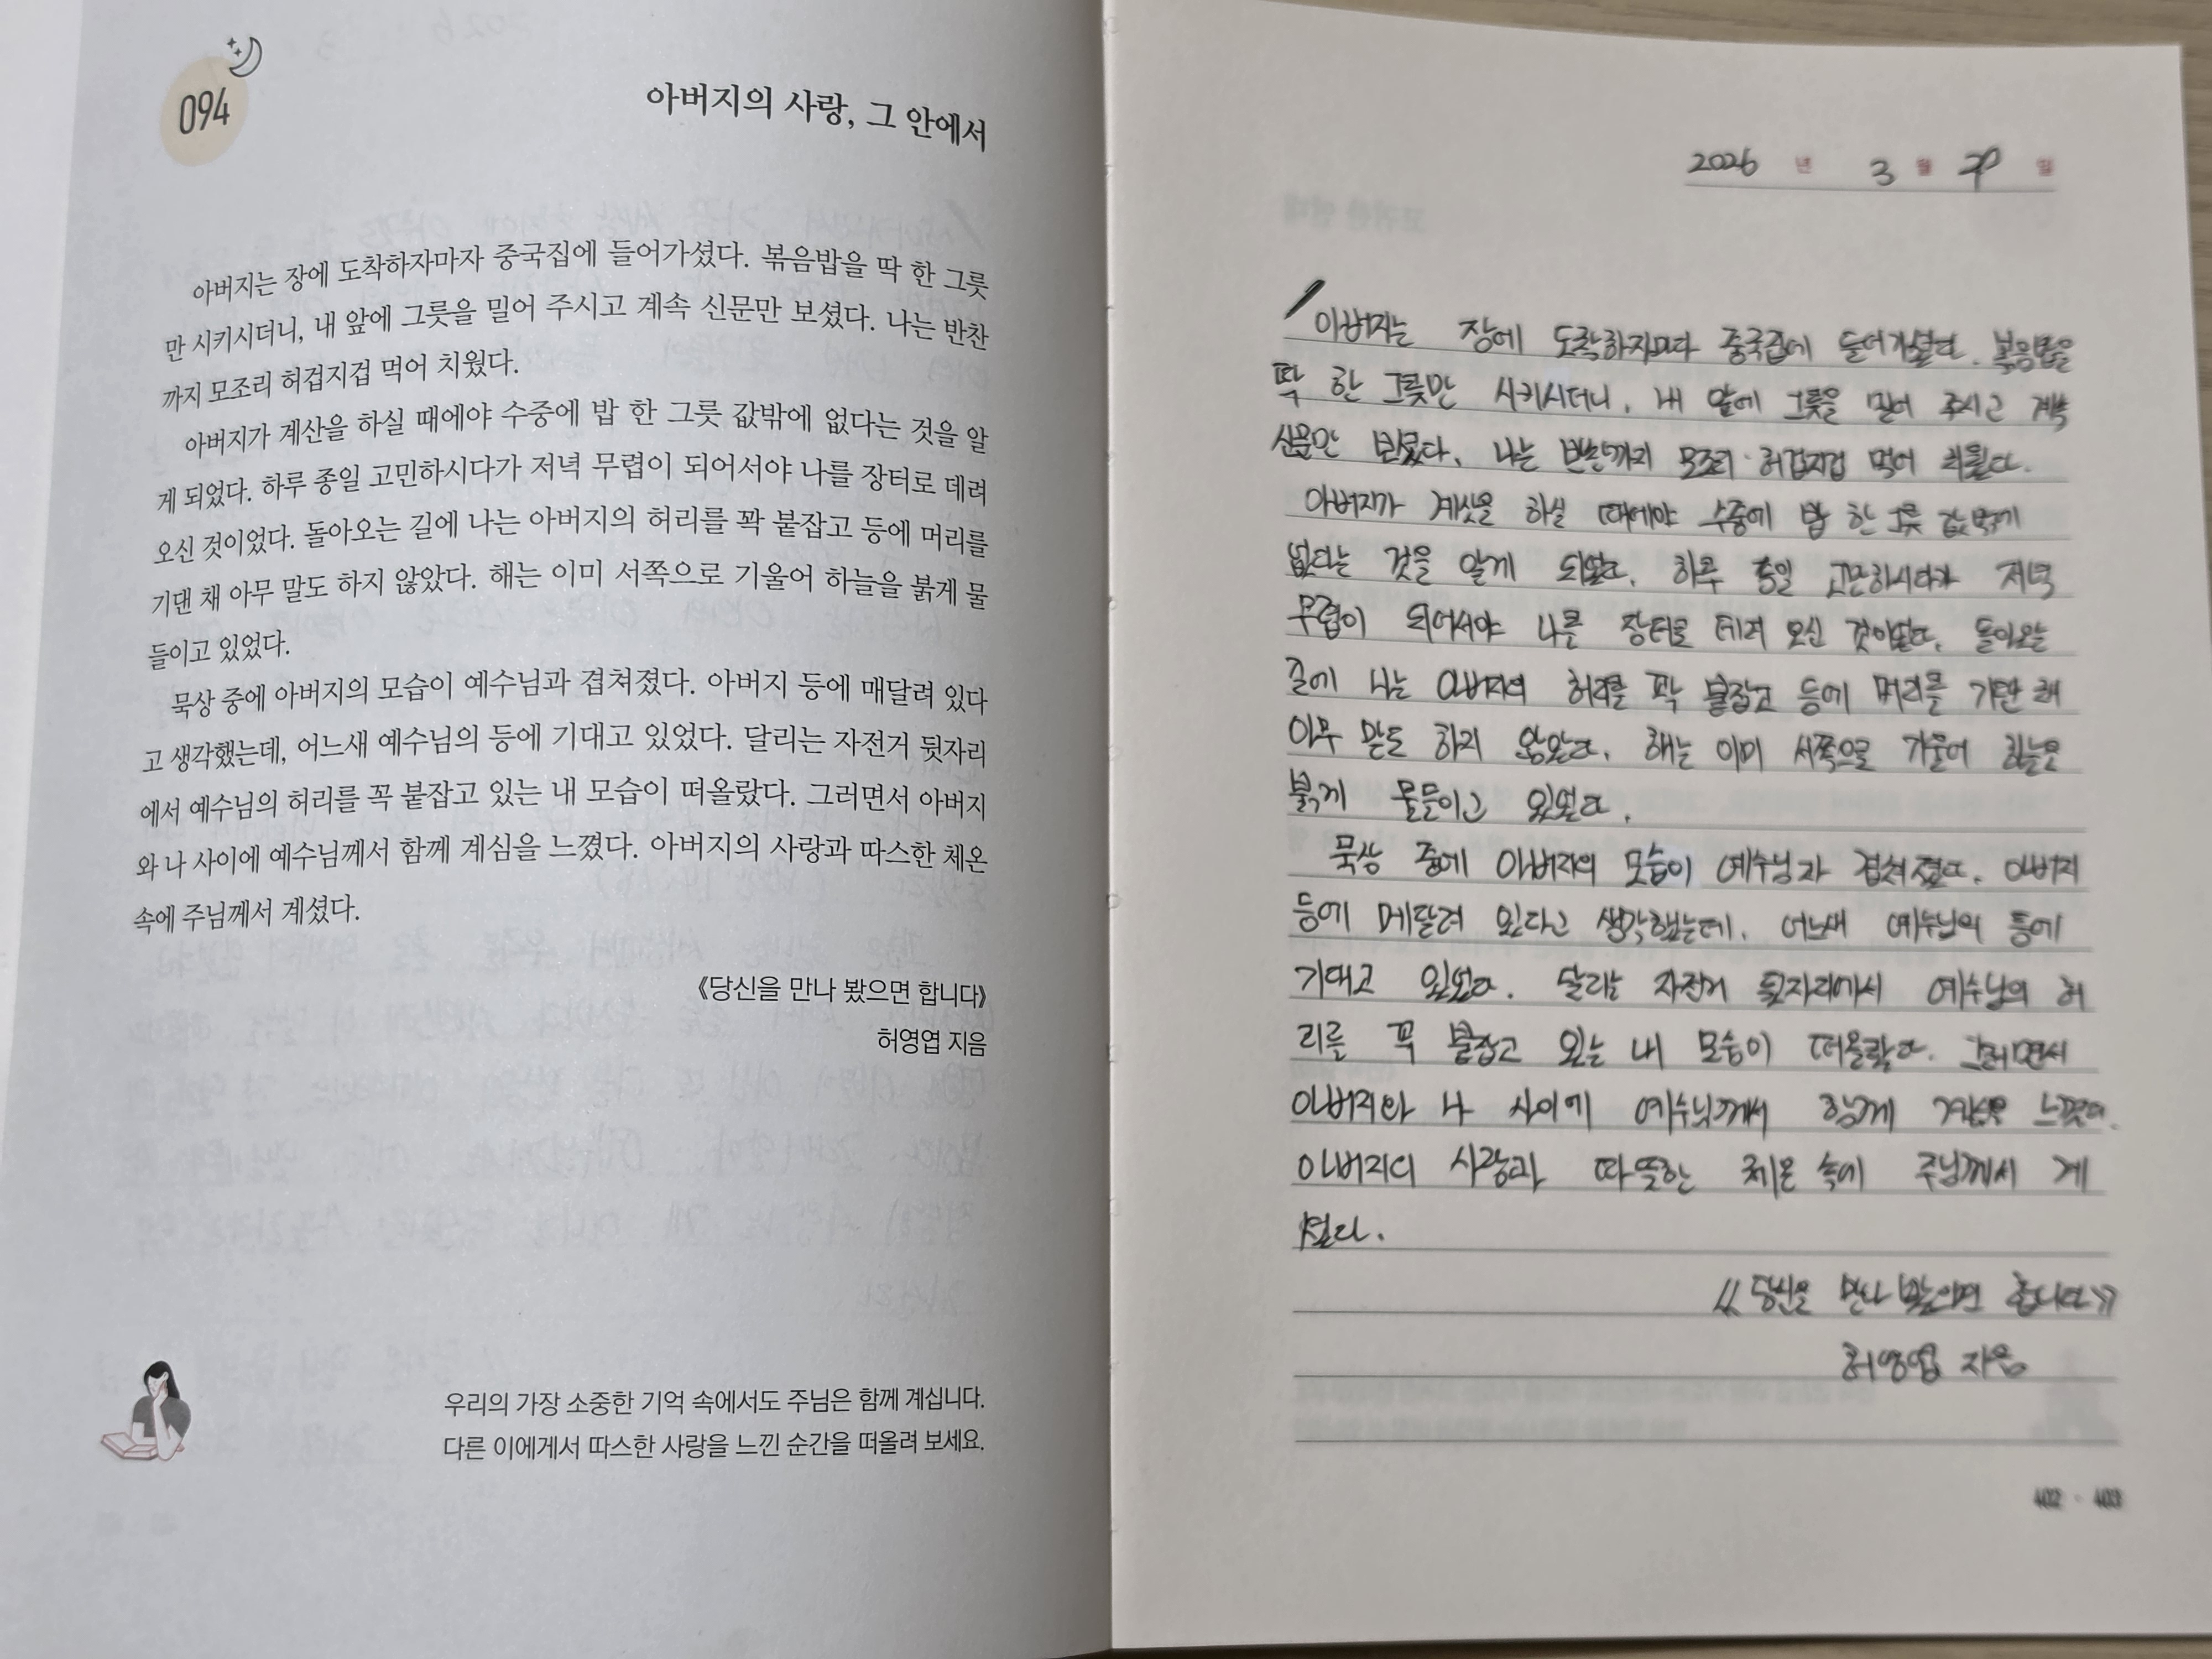 094
아버지의 사랑, 그 안에서
아버지는 장에 도착하자마자 중국집에 들어가셨다. 볶음밥을 딱 한 그릇
만 시키시더니, 내 앞에 그릇을 밀어 주시고 계속 신문만 보셨다. 나는 반찬
까지 모조리 허겁지겁 먹어 치웠다.
아버지가 계산을 하실 때에야 수중에 밥 한 그릇 값밖에 없다는 것을 알
게 되었다. 하루 종일 고민하시다가 저녁 무렵이 되어서야 나를 장터로 데려
오신 것이었다. 돌아오는 길에 나는 아버지의 허리를 꽉 붙잡고 등에 머리를
기댄 채 아무 말도 하지 않았다. 해는 이미 서쪽으로 기울어 하늘을 붉게 물
들이고 있었다.
묵상 중에 아버지의 모습이 예수님과 겹쳐졌다. 아버지 등에 매달려 있다
고 생각했는데, 어느새 예수님의 등에 기대고 있었다. 달리는 자전거 뒷자리
에서 예수님의 허리를 꼭 붙잡고 있는 내 모습이 떠올랐다. 그러면서 아버지
와 나 사이에 예수님께서 함께 계심을 느꼈다. 아버지의 사랑과 따스한 체온
속에 주님께서 계셨다.
《당신을 만나 봤으면 합니다》
허영엽 지음
우리의 가장 소중한 기억 속에서도 주님은 함께 계십니다.
다른 이에게서 따스한 사랑을 느낀 순간을 떠올려 보세요.
2026 년 3 월 일
아버지는 장에 도착하자마다 중국집에 들어가셨다. 볶음밥을
딱 한 그릇만 시키시더니, 내 앞에 그릇을 밀어 주시고 계속
신문만 보셨다. 나는 반찬까지 모조리 허겁지겁 먹어 치웠다.
아버지가 계산을 하실 때에야 수중에 밥 한 그릇 값밖에
없다는 것을 알게 되었다. 하루 종일 고민하시다가 저녁
무렵이 되어서야 나를 장터로 데려 오신 것이었다. 돌아오는
길에 나는 아버지의 허리를 꽉 붙잡고 등에 머리를 기댄 채
아무 말도 하지 않았다. 해는 이미 서쪽으로 기울어 하늘을
붉게 물들이고 있었다.
묵상 중에 아버지의 모습이 예수님과 겹쳐졌다. 아버지
등에 메달려 있다고 생각했는데, 어느새 예수님의 등에
기대고 있었다. 달리는 자전거 뒷자리에서 예수님의 허
리를 꼭 붙잡고 있는 내 모습이 떠올랐다. 그러면서
아버지와 나 사이에 예수님께서 함께 계심을 느꼈다.
아버지의 사랑과 따뜻한 체온 속에 주님께서 계
셨다.
《당신을 만나 봤으면 합니다》
허영엽 지음
402 · 403